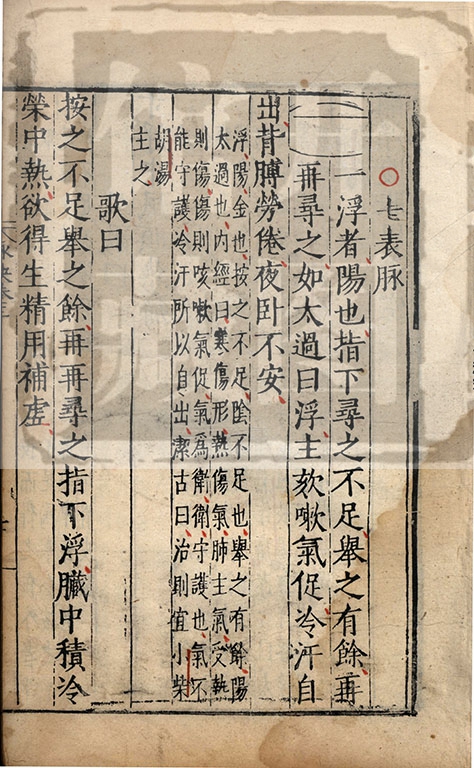 ○七表脉
一浮者陽也指下尋之不足舉之有餘再
再尋之如太過曰浮主欬嗽氣促冷汗自
出背膊勞倦夜卧不安
浮陽金也按之不足陰不足也舉之有餘陽
太過也内經曰寒傷形熱傷氣肺主氣受熱
則傷傷則咳嗽氣促氣爲衛衛守護也氣不
能守護冷汗所以自出潔古曰治則宜小柴
胡湯
主之
歌曰
按之不足舉之餘再再尋之指下浮臟中積冷
榮中熱欲得生精用補虛